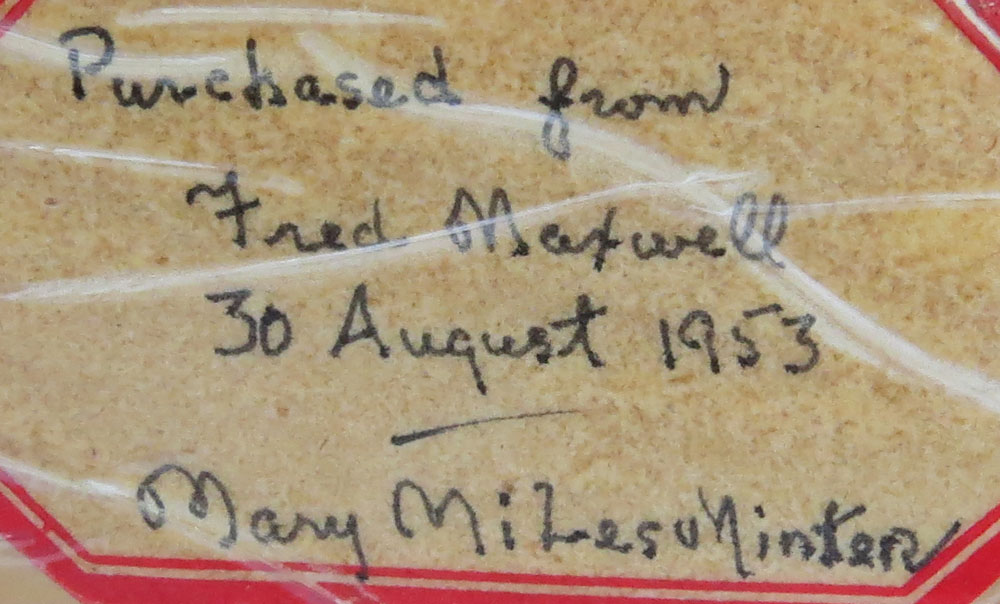 Purchased from
Fred Maxwell
30 August 1953
Mary Miles Minter